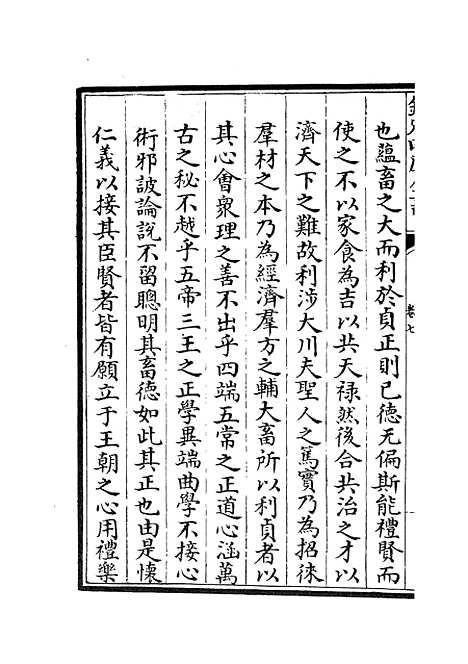 也蘊畜之大而利於貞正則已徳无偏斯能禮賢而
使之不以家食為吉以共天禄然後合共治之才以
濟天下之難故利涉大川夫聖人之篤實乃為招徠
羣材之本乃為經濟羣方之輔大畜所以利貞者以
其心㑹衆理之善不出乎四端五常之正道心涵萬
古之秘不越乎五帝三王之正學異端曲學不接心
術邪詖論説不留聰明其畜徳如此其正也由是懐
仁義以接其臣賢者皆有願立于王朝之心用禮樂
卷七